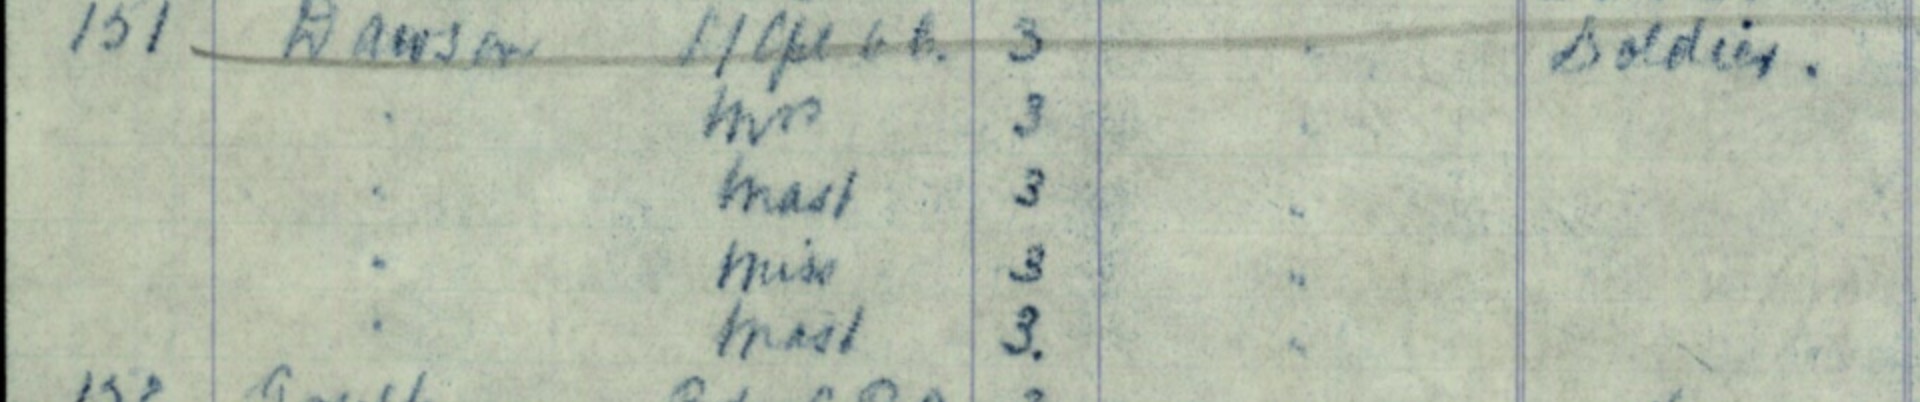 151 Dawson L/Cpl 3 " Soldier.
" Mrs 3 "
" Mast 3 "
" Miss 3 "
" Mast 3. "
152